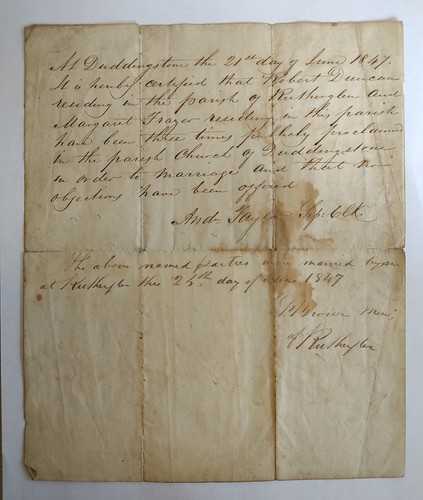 At Duddingstone the 21st day of June 1847.
It is hereby certified that Robert Duncan
residing in the parish of Rutherglen and
Margaret Frazer residing in this parish
have been three times publicly proclaimed
in the parish Church of Duddingstone
in order to marriage and that no
objections have been offered
Andw Taylor Clk.
The above named parties were married by me
at Rutherglen this 25th day of June 1847
Brown Minr
of Rutherglen